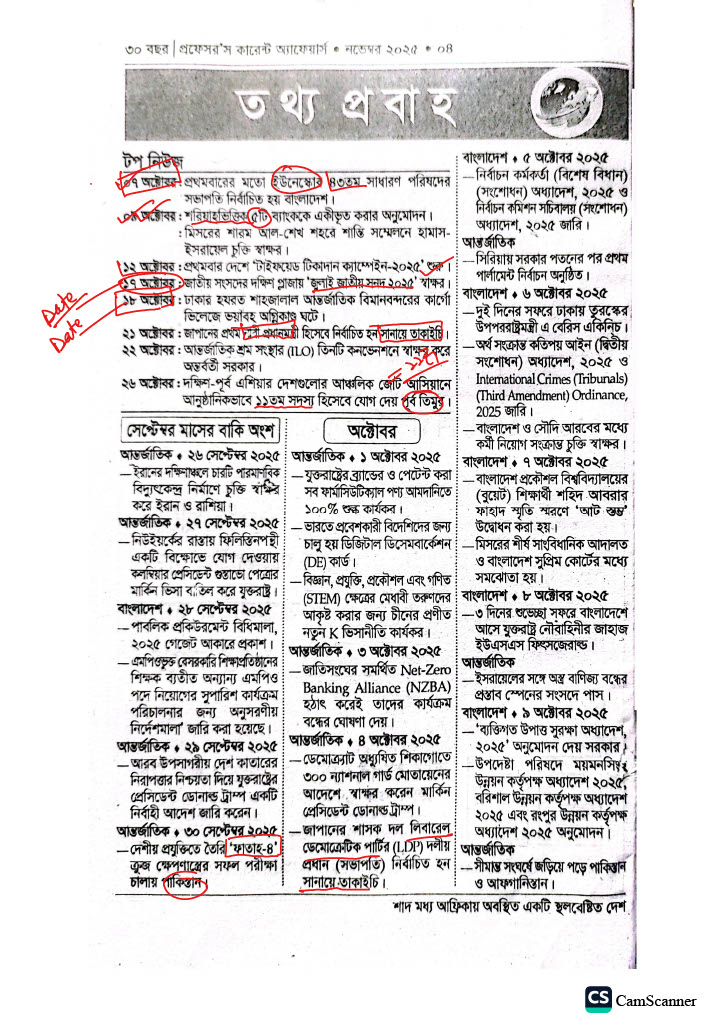 ৩০ বছর | প্রফেসর'স কারেন্ট অ্যাফেয়ার্স • নভেম্বর ২০২৫ • ০৪
তথ্য প্রবাহ
টপ নিউজ
০৭ অক্টোবর : প্রথমবারের মতো ইউনেস্কোর ৪৩তম সাধারণ পরিষদের
সভাপতি নির্বাচিত হয় বাংলাদেশ।
০৯ অক্টোবর : শরিয়াহভিত্তিক ৫টি ব্যাংককে একীভূত করার অনুমোদন।
: মিসরের শারম আল-শেখ শহরে শান্তি সম্মেলনে হামাস-
ইসরায়েল চুক্তি স্বাক্ষর।
১২ অক্টোবর : প্রথমবার দেশে 'টাইফয়েড টিকাদান ক্যাম্পেইন-২০২৫' শুরু।
১৭ অক্টোবর : জাতীয় সংসদের দক্ষিণ প্লাজায় 'জুলাই জাতীয় সনদ ২০২৫' স্বাক্ষর।
Date
১৮ অক্টোবর : ঢাকার হযরত শাহজালাল আন্তর্জাতিক বিমানবন্দরের কার্গো
Date
ভিলেজে ভয়াবহ অগ্নিকাণ্ড ঘটে।
২১ অক্টোবর : জাপানের প্রথম নারী প্রধানমন্ত্রী হিসেবে নির্বাচিত হন সানায়ে তাকাইচি।
২২ অক্টোবর : আন্তর্জাতিক শ্রম সংস্থার (ILO) তিনটি কনভেনশনে স্বাক্ষর করে
অন্তর্বর্তী সরকার।
২৬ অক্টোবর : দক্ষিণ-পূর্ব এশিয়ার দেশগুলোর আঞ্চলিক জোট আসিয়ানে
আনুষ্ঠানিকভাবে ১১তম সদস্য হিসেবে যোগ দেয় পূর্ব তিমুর।
সেপ্টেম্বর মাসের বাকি অংশ
আন্তর্জাতিক ♦ ২৬ সেপ্টেম্বর ২০২৫
– ইরানের দক্ষিণাঞ্চলে চারটি পারমাণবিক
বিদ্যুৎকেন্দ্র নির্মাণে চুক্তি স্বাক্ষর
করে ইরান ও রাশিয়া।
আন্তর্জাতিক ♦ ২৭ সেপ্টেম্বর ২০২৫
– নিউইয়র্কের রাস্তায় ফিলিস্তিনপন্থী
একটি বিক্ষোভে যোগ দেওয়ায়
কলম্বিয়ার প্রেসিডেন্ট গুস্তাভো পেত্রোর
মার্কিন ভিসা বাতিল করে যুক্তরাষ্ট্র।
বাংলাদেশ ♦ ২৮ সেপ্টেম্বর ২০২৫
– পাবলিক প্রকিউরমেন্ট বিধিমালা,
২০২৫ গেজেট আকারে প্রকাশ।
– এমপিওভুক্ত বেসরকারি শিক্ষাপ্রতিষ্ঠানের
শিক্ষক ব্যতীত অন্যান্য এমপিও
পদে নিয়োগের সুপারিশ কার্যক্রম
পরিচালনার জন্য অনুসরণীয়
নির্দেশমালা' জারি করা হয়েছে।
আন্তর্জাতিক ♦ ২৯ সেপ্টেম্বর ২০২৫
– আরব উপসাগরীয় দেশ কাতারের
নিরাপত্তার নিশ্চয়তা দিয়ে যুক্তরাষ্ট্রের
প্রেসিডেন্ট ডোনাল্ড ট্রাম্প একটি
নির্বাহী আদেশ জারি করেন।
আন্তর্জাতিক ♦ ৩০ সেপ্টেম্বর ২০২৫
– দেশীয় প্রযুক্তিতে তৈরি 'ফাতাহ-৪'
ক্রুজ ক্ষেপণাস্ত্রের সফল পরীক্ষা
চালায় পাকিস্তান
অক্টোবর
আন্তর্জাতিক ♦ ১ অক্টোবর ২০২৫
– যুক্তরাষ্ট্রের ব্র্যান্ডের ও পেটেন্ট করা
সব ফার্মাসিউটিক্যাল পণ্য আমদানিতে
১০০% শুল্ক কার্যকর।
– ভারতে প্রবেশকারী বিদেশিদের জন্য
চালু হয় ডিজিটাল ডিসেমবার্কেশন
(DE) কার্ড।
– বিজ্ঞান, প্রযুক্তি, প্রকৌশল এবং গণিত
(STEM) ক্ষেত্রের মেধাবী তরুণদের
আকৃষ্ট করার জন্য চীনের প্রণীত
নতুন K ভিসানীতি কার্যকর।
আন্তর্জাতিক ♦ ৩ অক্টোবর ২০২৫
– জাতিসংঘের সমর্থিত Net-Zero
Banking Alliance (NZBA)
হঠাৎ করেই তাদের কার্যক্রম
বন্ধের ঘোষণা দেয়।
আন্তর্জাতিক ♦ ৪ অক্টোবর ২০২৫
– ডেমোক্র্যাট অধ্যুষিত শিকাগোতে
৩০০ ন্যাশনাল গার্ড মোতায়েনের
আদেশে স্বাক্ষর করেন মার্কিন
প্রেসিডেন্ট ডোনাল্ড ট্রাম্প।
– জাপানের শাসক দল লিবারেল
ডেমোক্রেটিক পার্টির (LDP) দলীয়
প্রধান (সভাপতি) নির্বাচিত হন
সানায়ে তাকাইচি।
বাংলাদেশ ♦ ৫ অক্টোবর ২০২৫
– নির্বাচন কর্মকর্তা (বিশেষ বিধান)
(সংশোধন) অধ্যাদেশ, ২০২৫ ও
নির্বাচন কমিশন সচিবালয় (সংশোধন)
অধ্যাদেশ, ২০২৫ জারি।
আন্তর্জাতিক
– সিরিয়ায় সরকার পতনের পর প্রথম
পার্লামেন্ট নির্বাচন অনুষ্ঠিত।
বাংলাদেশ ♦ ৬ অক্টোবর ২০২৫
– দুই দিনের সফরে ঢাকায় তুরস্কের
উপপররাষ্ট্রমন্ত্রী এ বেরিস একিনিচ।
– অর্থ সংক্রান্ত কতিপয় আইন (দ্বিতীয়
সংশোধন) অধ্যাদেশ, ২০২৫ ও
International Crimes (Tribunals)
(Third Amendment) Ordinance,
2025 জারি।
– বাংলাদেশ ও সৌদি আরবের মধ্যে
কর্মী নিয়োগ সংক্রান্ত চুক্তি স্বাক্ষর।
বাংলাদেশ ♦ ৭ অক্টোবর ২০২৫
– বাংলাদেশ প্রকৌশল বিশ্ববিদ্যালয়ের
(বুয়েট) শিক্ষার্থী শহিদ আবরার
ফাহাদ স্মৃতি স্মরণে 'আট স্তম্ভ'
উদ্বোধন করা হয়।
– মিসরের শীর্ষ সাংবিধানিক আদালত
ও বাংলাদেশ সুপ্রিম কোর্টের মধ্যে
সমঝোতা হয়।
বাংলাদেশ ♦ ৮ অক্টোবর ২০২৫
– ৩ দিনের শুভেচ্ছা সফরে বাংলাদেশে
আসে যুক্তরাষ্ট্র নৌবাহিনীর জাহাজ
ইউএসএস ফিৎসজেরাল্ড।
আন্তর্জাতিক
– ইসরায়েলের সঙ্গে অস্ত্র বাণিজ্য বন্ধের
প্রস্তাব স্পেনের সংসদে পাস।
বাংলাদেশ ♦ ৯ অক্টোবর ২০২৫
– 'ব্যক্তিগত উপাত্ত সুরক্ষা অধ্যাদেশ,
২০২৫' অনুমোদন দেয় সরকার।
– উপদেষ্টা পরিষদে ময়মনসিংহ
উন্নয়ন কর্তৃপক্ষ অধ্যাদেশ ২০২৫,
বরিশাল উন্নয়ন কর্তৃপক্ষ অধ্যাদেশ
২০২৫ এবং রংপুর উন্নয়ন কর্তৃপক্ষ
অধ্যাদেশ ২০২৫ অনুমোদন।
আন্তর্জাতিক
– সীমান্ত সংঘর্ষে জড়িয়ে পড়ে পাকিস্তান
ও আফগানিস্তান।
শাদ মধ্য আফ্রিকায় অবস্থিত একটি স্থলবেষ্টিত দেশ
CS CamScanner